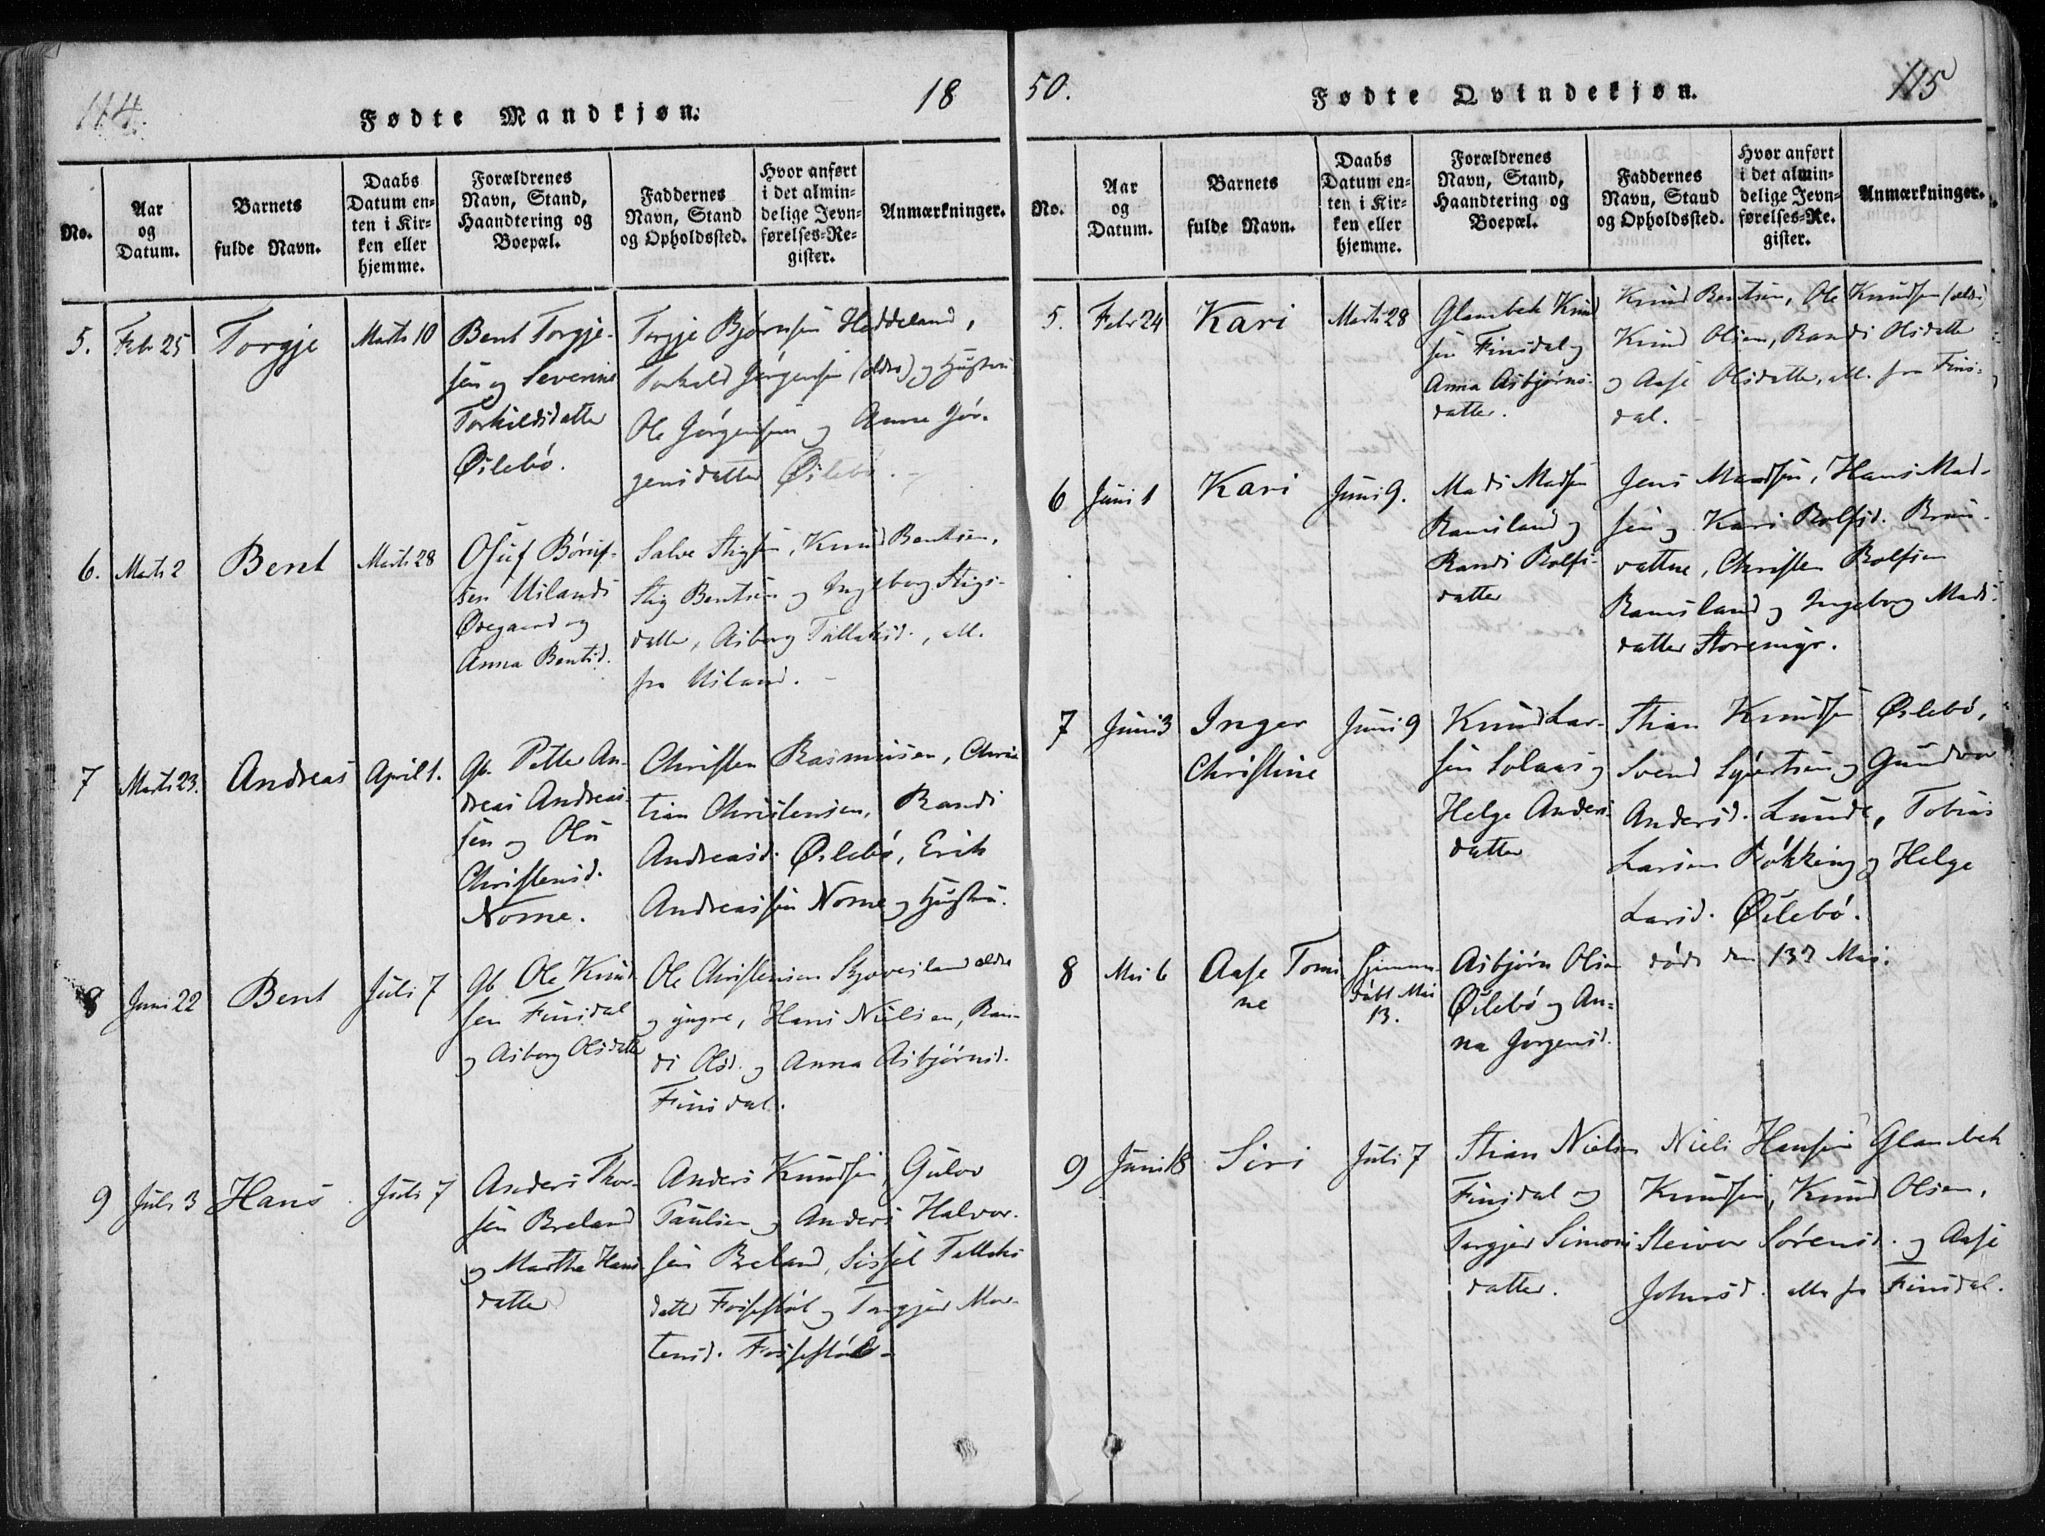 114.
Fødte Mandkjøn.
18
No.
Aar
og
Datum.
Barnets
fulde Navn.
Daabs
Datum en-
ten i Kir-
ken eller
hjemme.
Forældrenes
Navn, Stand,
Haandtering og
Boepæl.
Faddernes
Navn, Stand
og Opholdssted.
Hvor anført
i det almin-
delige Jevn-
førelses-Re-
gister.
Anmærkninger.
5. Febr 25 Torgje Marts 10
Bent Torgje-
sen og Severine
Torkildsdatter
Øilebø.
Torgje Bjørnsen Heddeland,
Torkeld Jørgensen (ældre) og Hustru
Ole Jørgensen og Anne Jør-
gensdatter Øilebø.
6. Marts 2 Bent Marts 28
Osuf
Uiland
Øvegaard og
Anna Bentsd.
Salve Stigsen, Knud Bentsen,
Stig Bentsen og Ingeborg Stigs-
datter, Asborg Tallaksd., all.
fra Uiland.
7 Marts 23. Andreas April 1.
Gb. Petter An-
dreas Andreas-
sen og Olu
Christensd.
Nome.
Christen Rasmussen, Chris
tian Christensen, Randi
Andreasd. Øilebø, Erik
Andreassen Nome og Hustru.
8 Juni 22 Bent Juli 7
Gb Ole Knud
sen Finsdal
og Asborg Olsdatter
Ole Christensen Skjævesland ældre
og yngre, Hans Nielsen, Ran-
di Olsd. og Anna Asbjørnsd.
Finsdal.
9 Juli 3 Hans Juli 7
Anders Thor-
sen Breland
og Martha Hans
datter
Anders Knudsen, Gulov
Paulsen og Anders Halvor-
sen Breland, Sissel Tallaks
datter Fossestøl og Torgjer Mor-
tensd. Fossestøl.
50.
Fødte Qvindekjøn.
115
No.
Aar
og
Datum.
Barnets
fulde Navn.
Daabs
Datum en-
ten i Kir-
ken eller
hjemme.
Forældrenes
Navn, Stand,
Haandtering og
Boepæl.
Faddernes
Navn, Stand
og Opholdssted.
Hvor anført
i det almin-
delige Jevn-
førelses-Re-
gister.
Anmærkninger.
5. Febr 24 Kari Marts 28
Glambek Knud
sen Finsdal og
Anna Asbjørns-
datter.
Knud Bentsen, Ole Knudsen (ældre)
Knud Olsen, Randi Olsdatter
og Aase Olsdatter, all. fra Fins-
dal.
6 Juni 1 Kari Juni 9.
Mads Madsen
Ramsland og
Randi Rolfs-
datter
Jens Madsen, Hans Mad-
sen og Kari Rolfsd. Brun-
vattne, Christen Rolfsen
Ramsland og Ingeborg Mads-
datter Storenigr.
7 Juni 3 Inger
Christine
Juni 9
Knud Lar-
sen Solaas og
Helge Anders-
datter
Stian Knudsen Øilebø,
Svend Syvertsen og Gundvor
Andersd. Lunde, Tobias
Larsen Røkking og Helge
Larsd. Øilebø.
8 Mai 6 Aase Tomi
ne
Hjemme-
døbt Mai
13.
Asbjørn Olsen
Øilebø og An-
na Jørgensd.
døde den 13de Mai.
9 Juni 18 Siri Juli 7
Stian Nielsen
Finsdal og
Torgjer Simons
datter.
Niels Hansen Glambek
Knudsen, Knud Olsen,
Steinor Sørensd. og Aase
Johnsd. alle fra Finsdal.